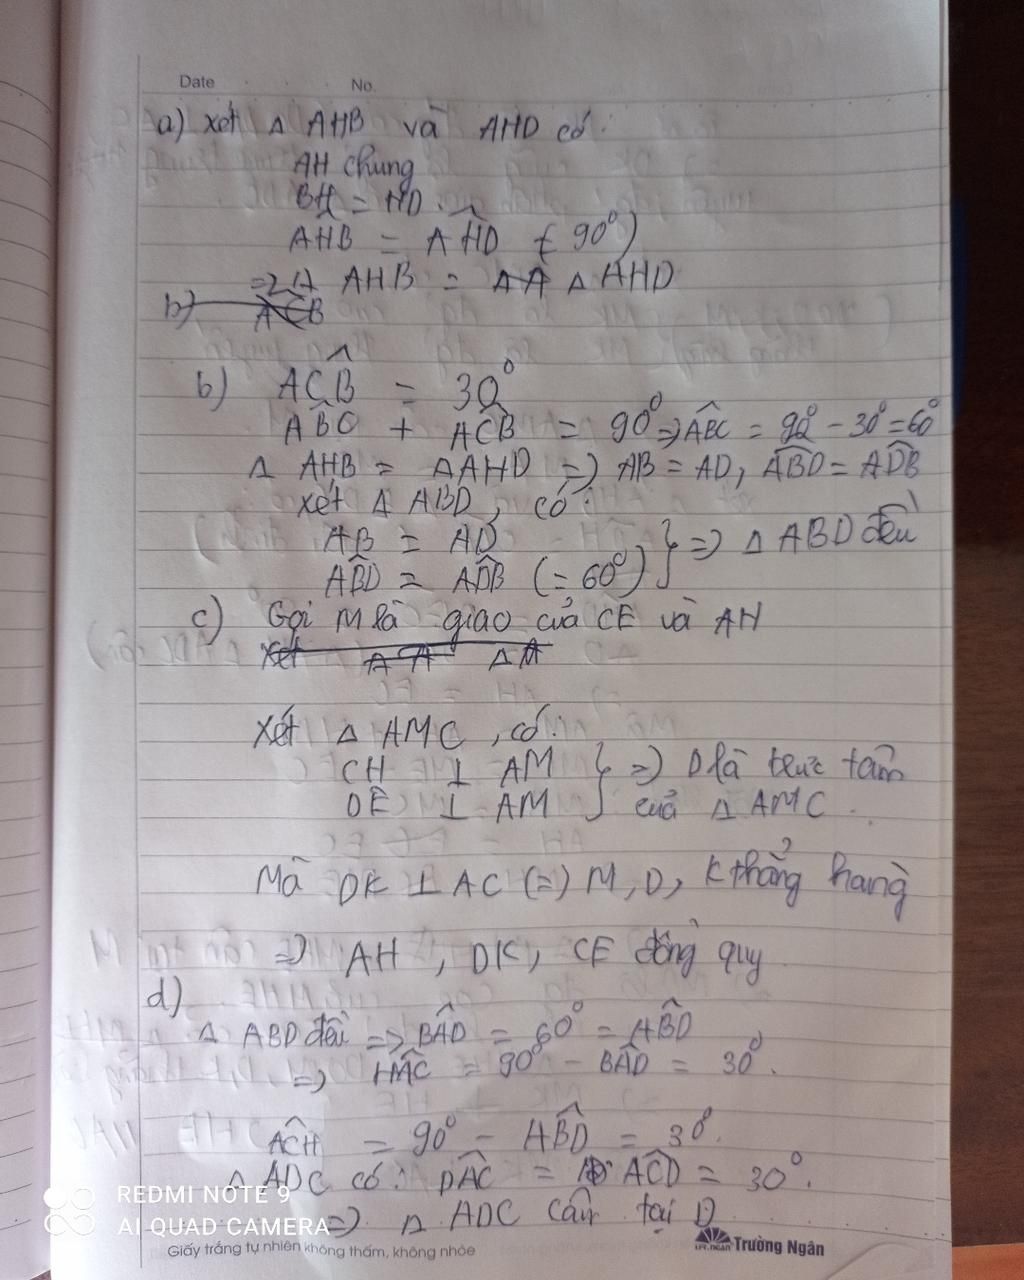 Date No.
a) xét Δ AHB và AHD có:
AH chung
BH = HD.
AHB = AHD (= 90°)
=> Δ AHB = Δ AHD
b)
ACB
b) ACB = 30°
ABC + ACB = 90° => ABC = 90° - 30° = 60°
Δ AHB = ΔAHD => AB = AD, ABD = ADB
xét Δ ABD, có:
AB = AD } => Δ ABD đều
ABD = ADB (= 60°)
c) Gọi M là giao của CE và AH
Xét
Xét Δ AMC, có:
CH ⊥ AM } => D là trực tâm
DE ⊥ AM của Δ AMC.
Mà DK ⊥ AC (=) M, D, K thẳng hàng
=> AH, DK, CE đồng quy
d)
Δ ABD đều => BAD = 60° = ABD
=> HAC = 90° - BAD = 30°.
ACH = 90° - ABD = 30°.
Δ ADC có: DAC = ACD = 30°.
=> Δ ADC cân tại D
REDMI NOTE 9
AI QUAD CAMERA
Giấy trắng tự nhiên không thấm, không nhòe
Trường Ngân